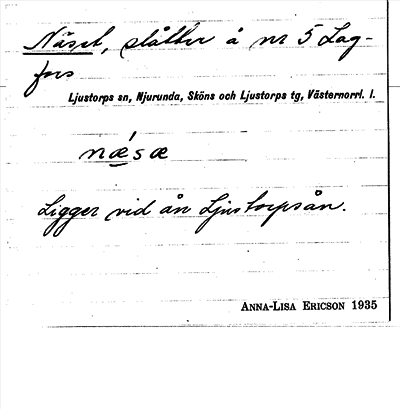 Näset, slåtter å nr 5 Lag-
fors
Ljustorps sn, Njurunda, Sköns och Ljustorps tg, Västernorrl. l.
næ´sæ
Ligger vid ån Ljustorpsån.
ANNA-LISA ERICSON 1935